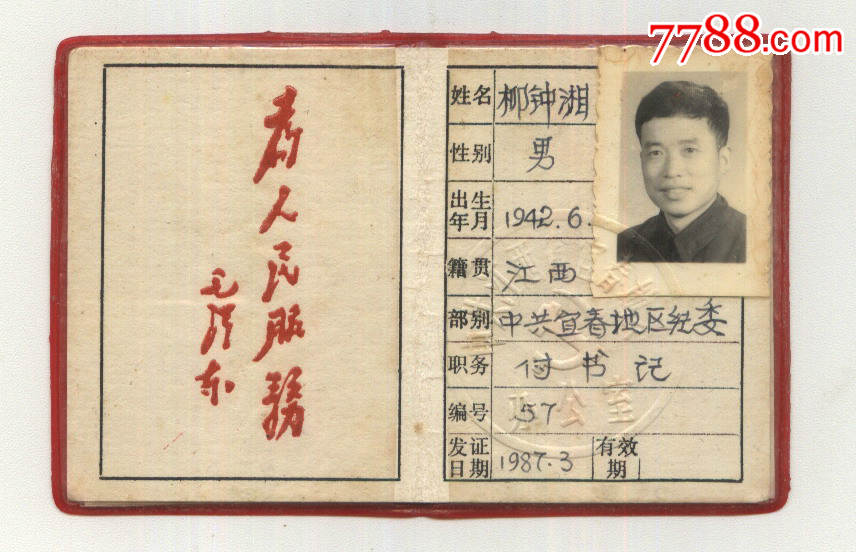 7788.com
为人民服务
毛泽东
姓名 柳钟湘
性别 男
出生年月 1942.6.
籍贯 江西
部别 中共宜春地区纪委
职务 付书记
编号 57
发证日期 1987.3 有效期
办公室